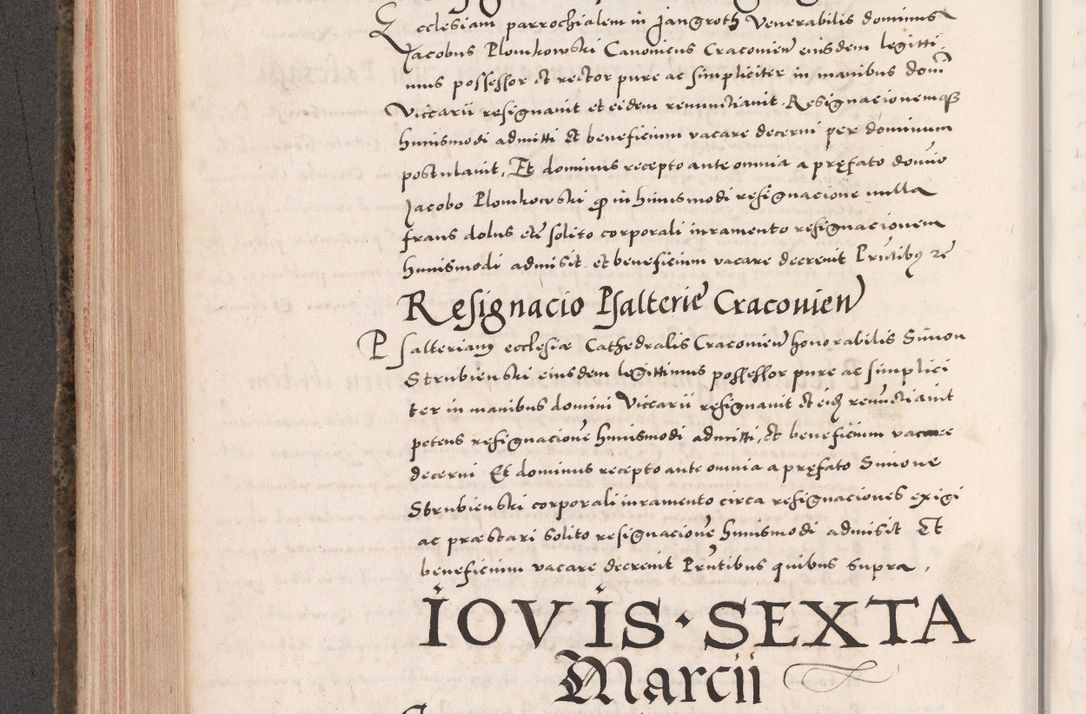 Ecclesiam parrochialem in Jangroth Venerabilis dominus
Jacobus Plomkowski Canonicus Cracovień eiusdem legitti
mus possessor et rector pure ac simpliciter in manibus domī
Viccarii resignavit et eidem renunctiavit. Resignacionemqȝ
huiusmodi admitti et beneficium vacare decerni per dominum
postulavit, Et dominus recepto ante omnia a pręfato domīo
Jacobo Plomkowski ꝙ in huiusmodi resignacione nulla
fraus dolus etc̃ solito corporali iuramento resignacionem
huiusmodi admisit et beneficium vacare decrevit Prñtibus ꝛc̃
Resignacio Psalterie Cracovień
Psalteriam ecclesiæ Cathedralis Cracovień honorabilis Simon
Strubienski eiusdem legittimus possessor pure ac simplici
ter in manibus domini Viccarii resignavit et eidẽ renūctiavit
petens resignacionē huiusmodi admitti, et beneficium vacare
decerni Et dominus recepto ante omnia a pręfato Simone
Strubienski corporali iuramento circa resignaciones exigi
ac præstari solito resignacionē huiusmodi admisit Et
beneficium vacare decrevit Prñtibus quibus supra,
IOVIS · SEXTA
Marcii